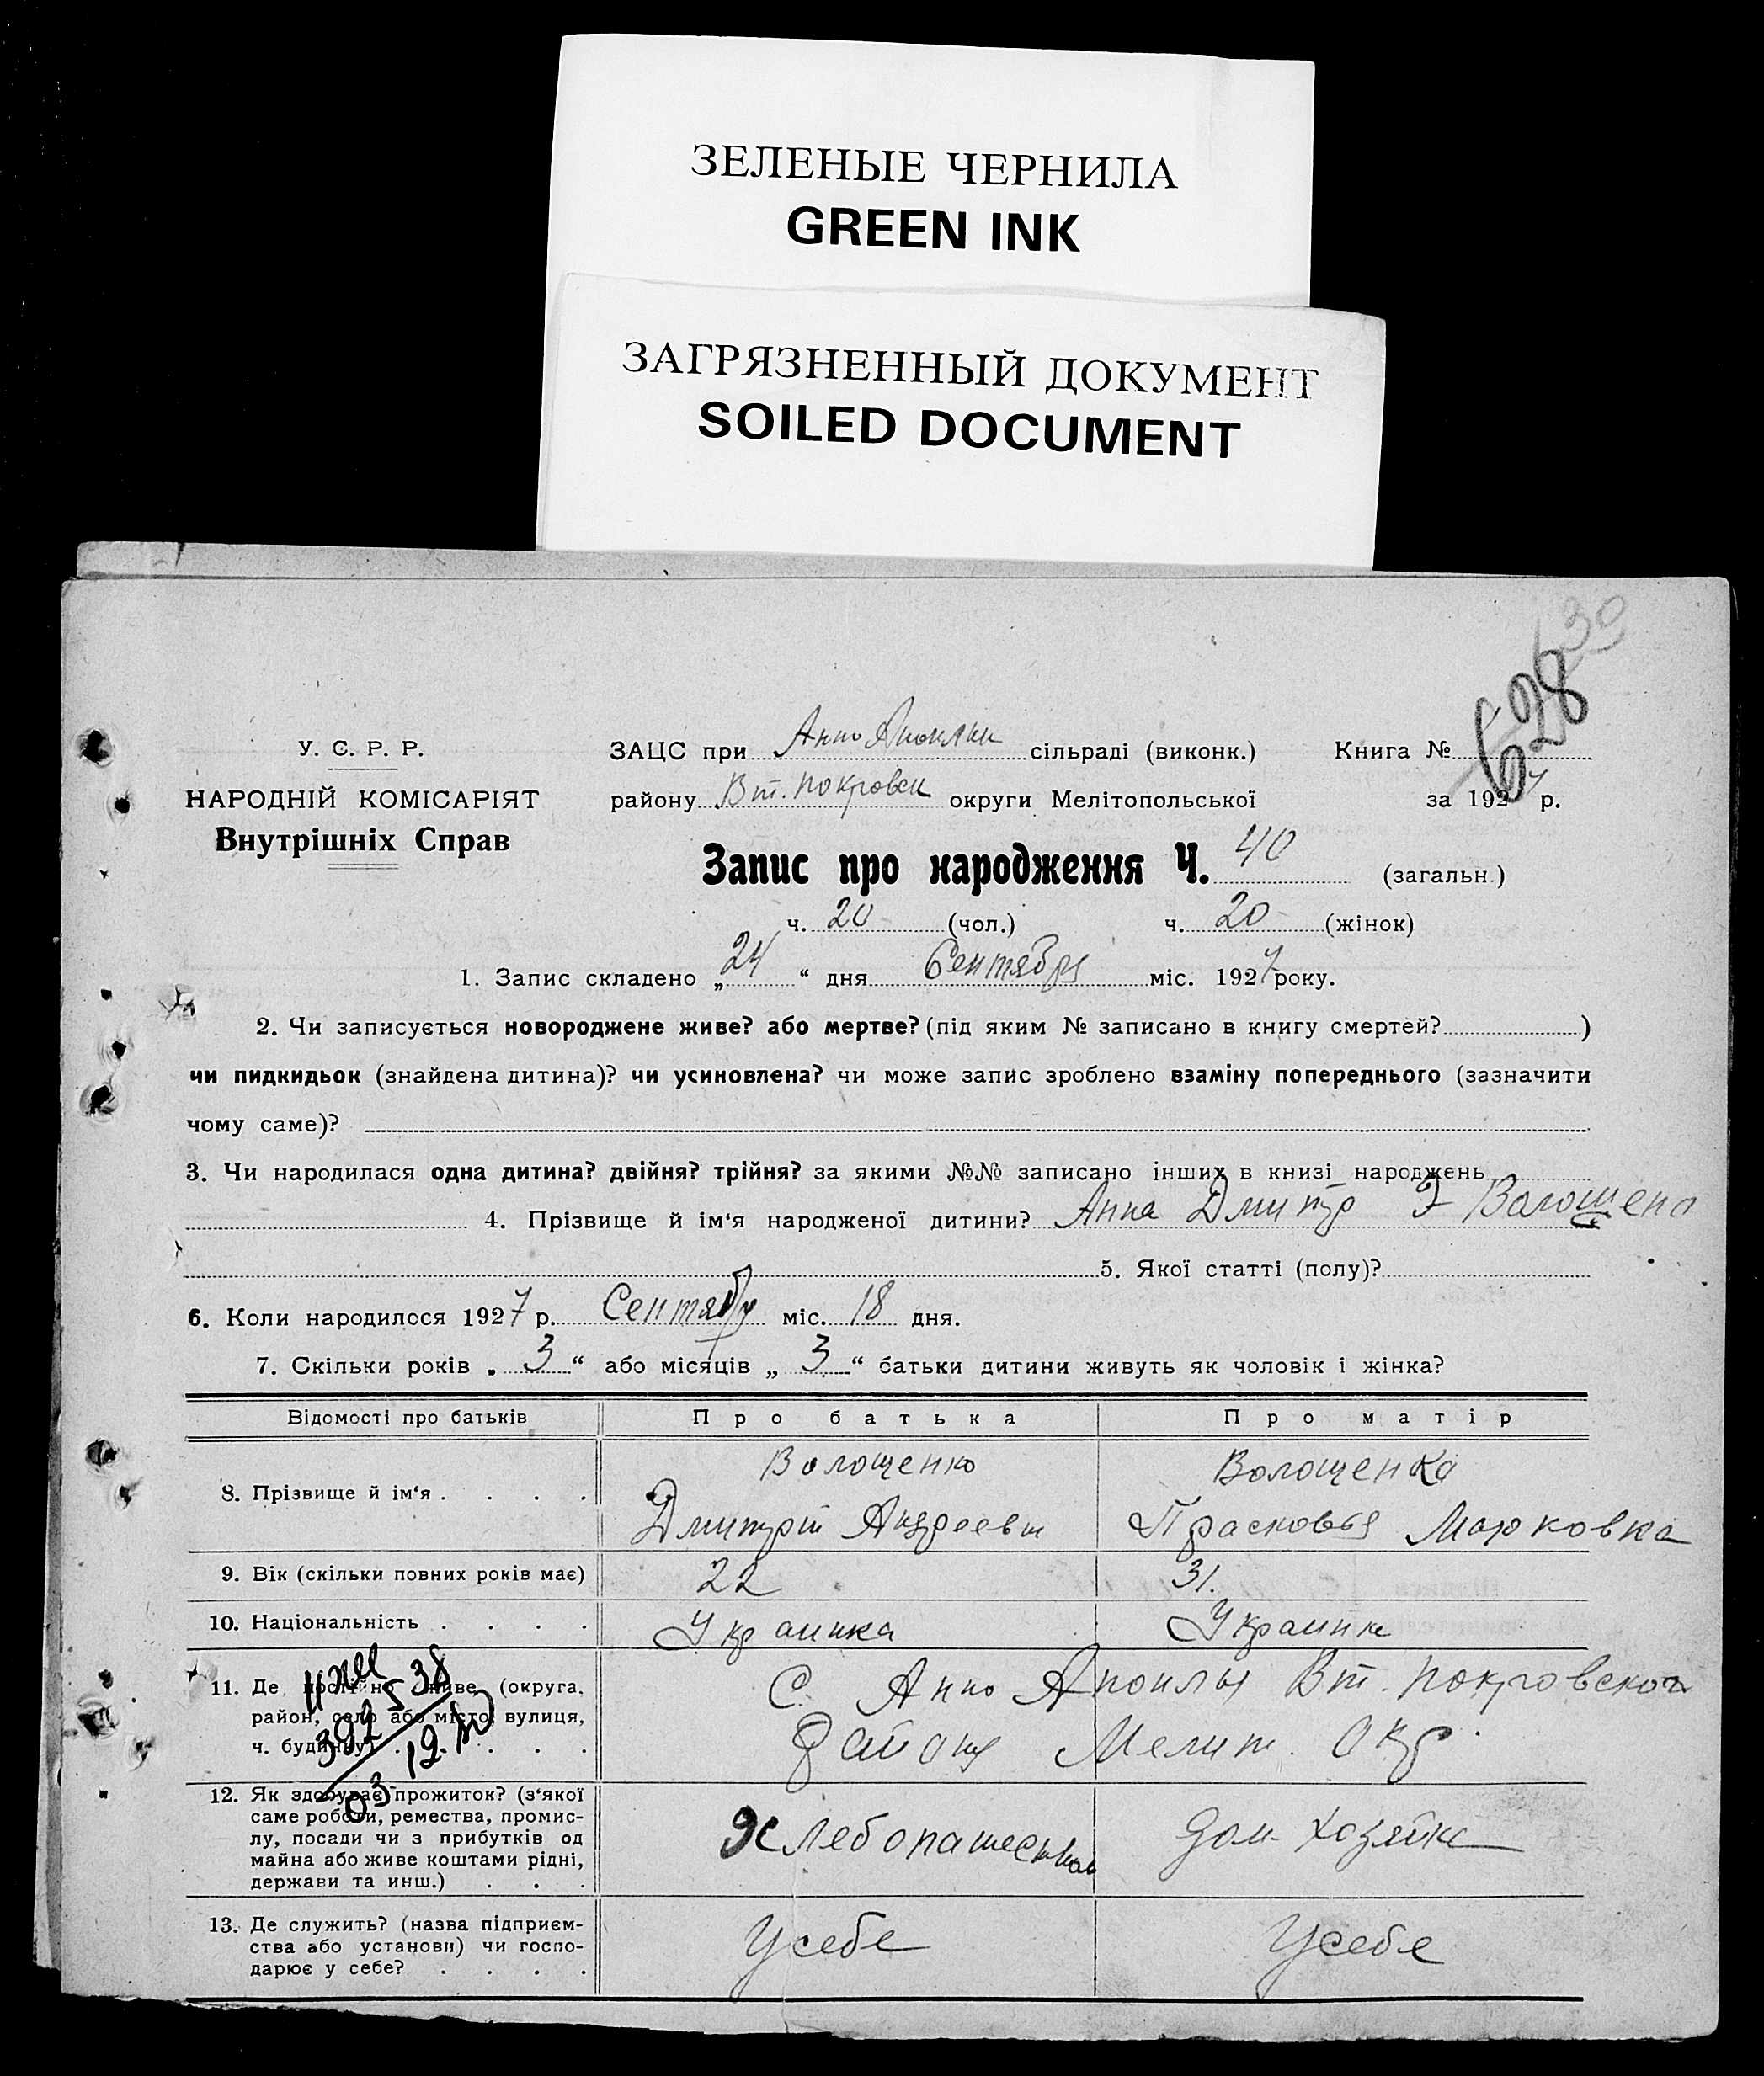 ЗЕЛЕНЫЕ ЧЕРНИЛА
GREEN INK
ЗАГРЯЗНЕННЫЙ ДОКУМЕНТ
SOILED DOCUMENT
630
628
У. С. Р. Р.
НАРОДНІЙ КОМІСАРІЯТ
Внутрішніх Справ
ЗАЦС при Анно сільраді (виконк.) Книга №
району Вт. покровск округи Мелітопольської за 1927 р.
Запис про народження Ч. 40 (загальн.)
ч. 20 (чол.) ч. 20 (жінок)
1. Запис складено „24“ дня Сентября міс. 1927 року.
2. Чи записується новороджене живе? або мертве? (під яким № записано в книгу смертей? )
чи пидкидьок (знайдена дитина)? чи усиновлена? чи може запис зроблено взаміну попереднього (зазначити
чому саме)?
3. Чи народилася одна дитина? двійня? трійня? за якими №№ записано інших в книзі народжень
4. Прізвище й ім‘я народженої дитини? Анна Дмитр Э Волощено
5. Якої статті (полу)?
6. Коли народилося 1927 р. Сентябр міс. 18 дня.
7. Скільки років „ 3 “ або місяців „ 3 “ батьки дитини живуть як чоловік і жінка?
Відомості про батьків Про батька Про матір
8. Прізвище й ім‘я . . . . Волощенко Волощенка
Дмитрий Андреевич Прасковья Марковка
9. Вік (скільки повних років має) 22 31.
10. Національність . . . . Украинка
11. Де постійно живе (округа, С. Анно Вт. покровского
район, село або місто, вулиця, Району Мелит. Окр.
ч. будинку) . . . . .
392 538
03 12
12. Як здобуває прожиток? (з‘якої
саме роботи, ремества, промис-
лу, посади чи з прибутків од
майна або живе коштами рідні,
держави та инш.) . . .
дом. хозяйка
13. Де служить? (назва підприєм-
ства або установи) чи госпо-
дарює у себе? . . . .
Усебе Усебе